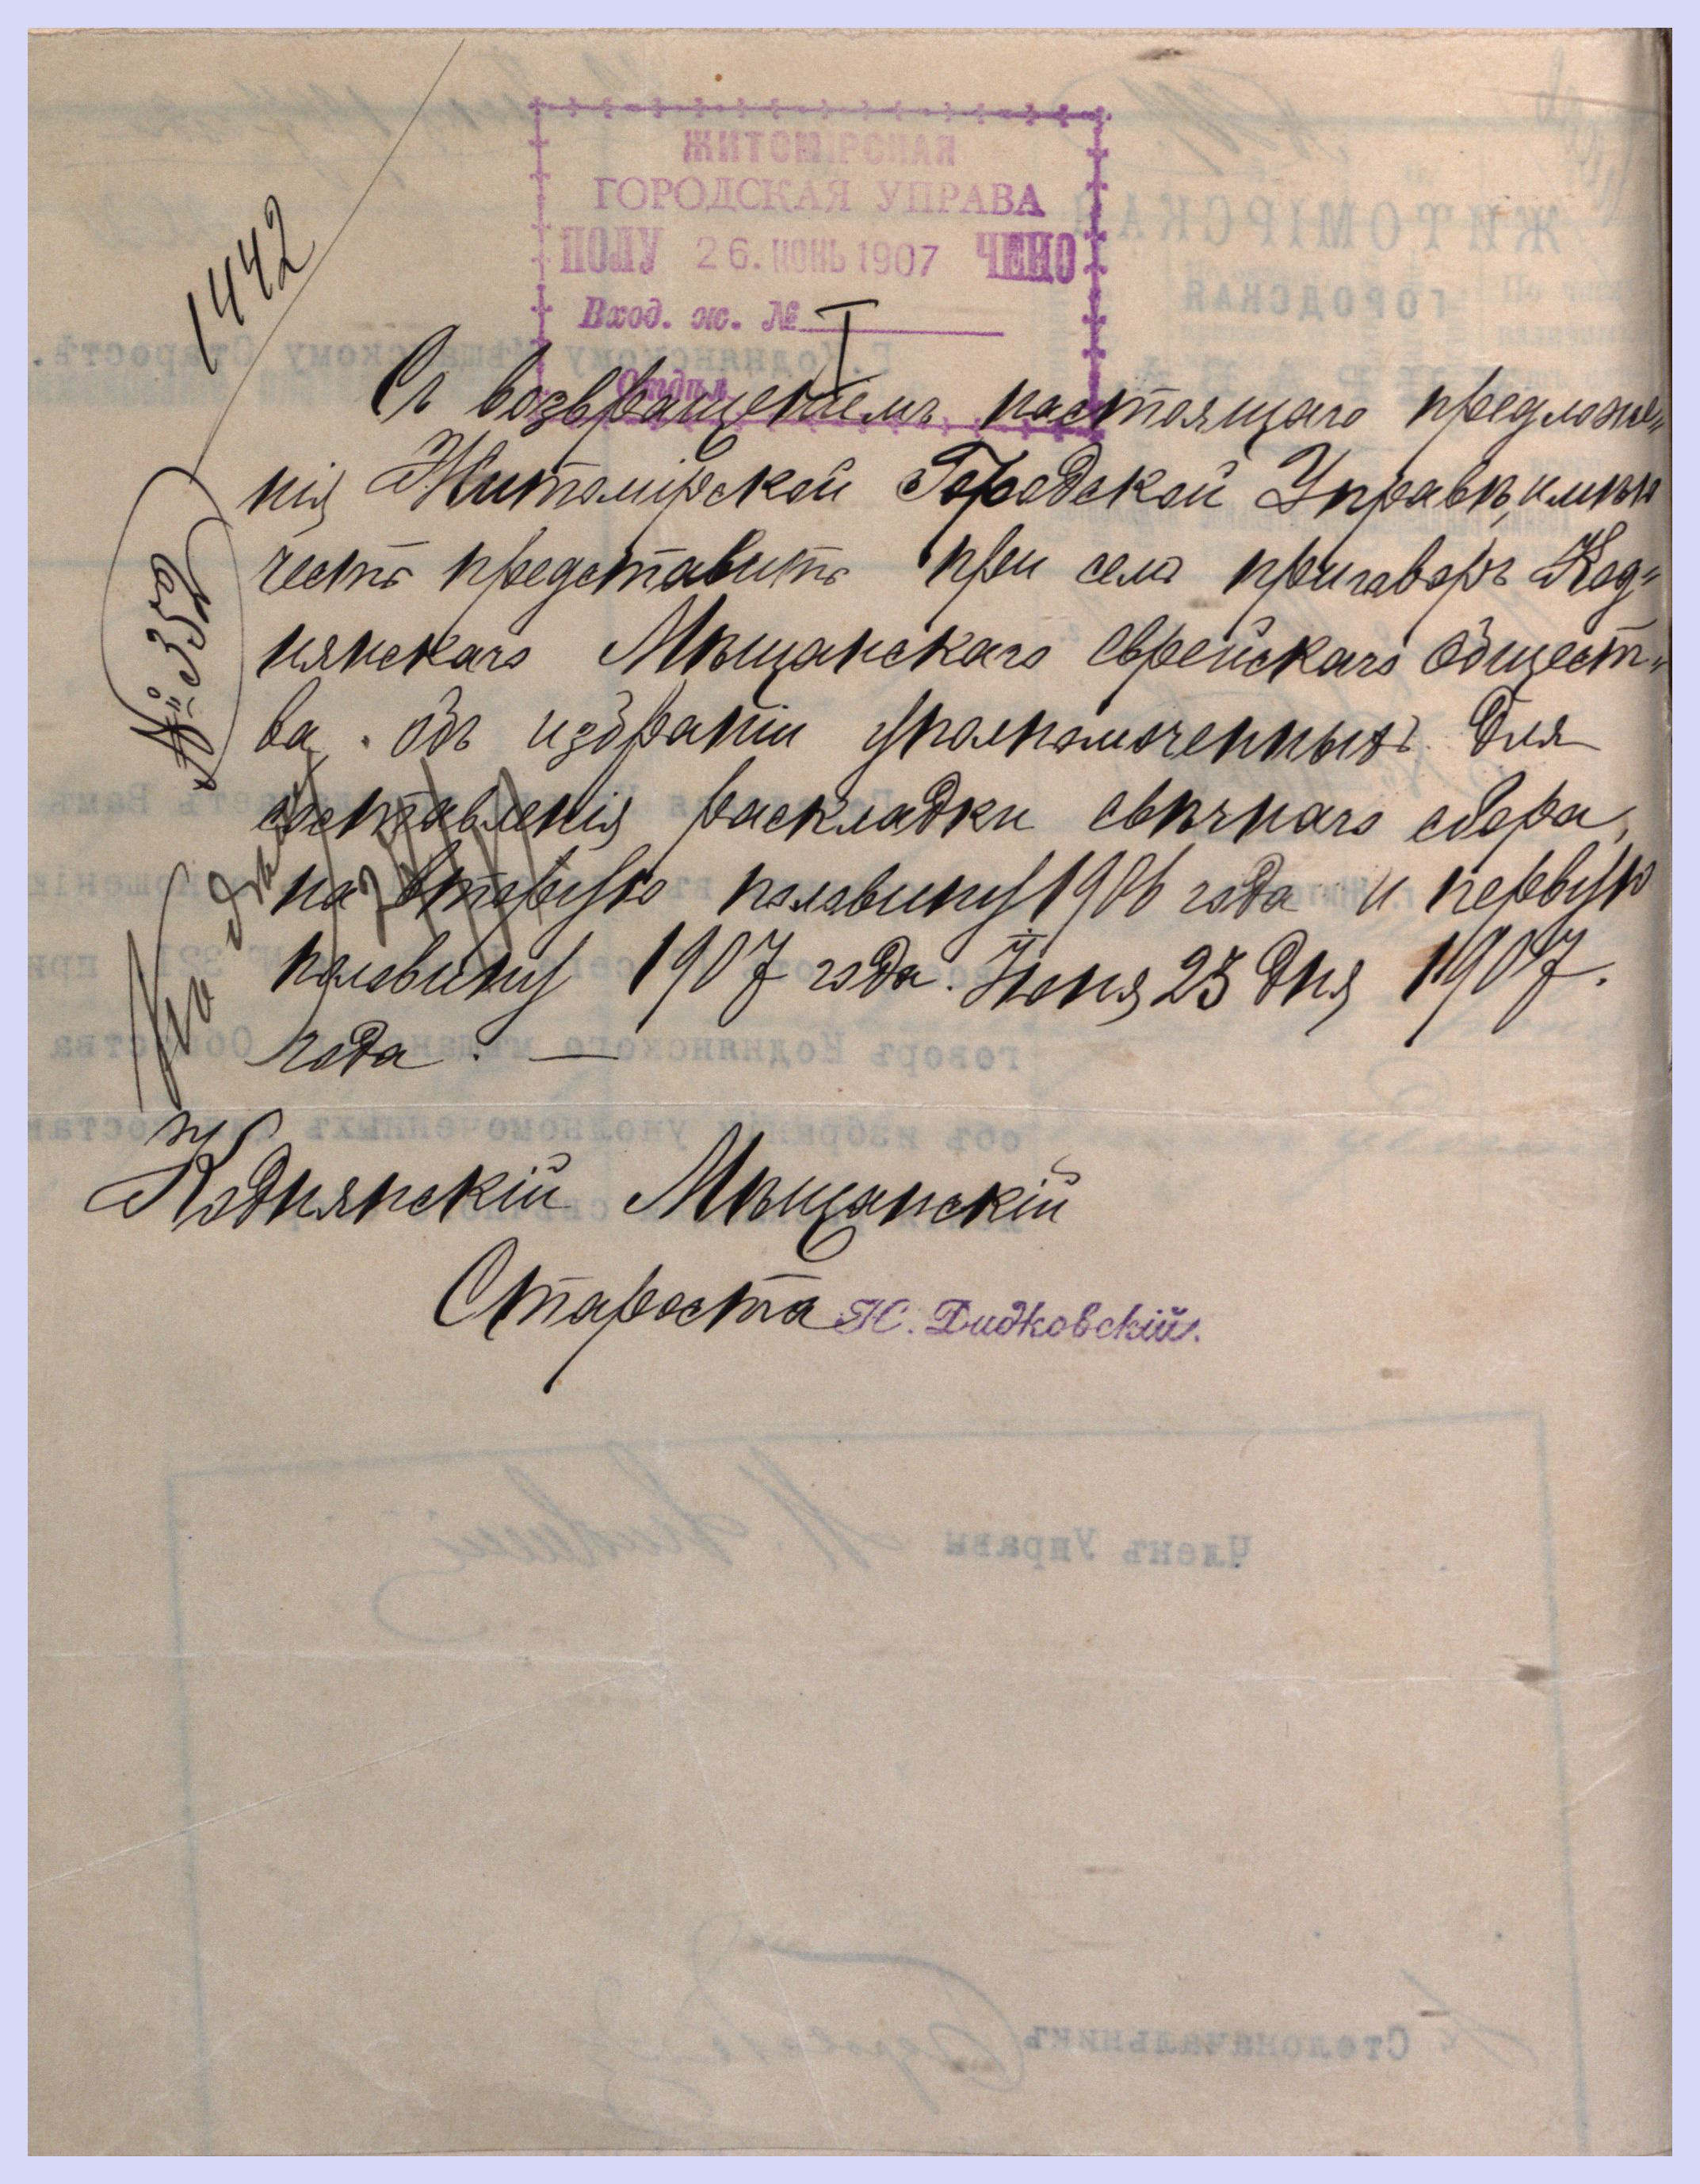 ЖИТОМІРСКАЯ
ГОРОДСКАЯ УПРАВА
ПОЛУ 26. ИЮНЬ 1907 ЧЕНО
Вход. ж. №
I
Отдѣл
1442
Съ возвращеніемъ настоящаго предложе„
нія Житомірской Городской Управѣ, имѣю
честь представить при семъ приговоръ Код„
нянскаго Мѣщанскаго еврейскаго Общест„
ва объ избраніи уполномоченныхъ для
составленія раскладки свѣчнаго сбора,
на вторую половину 1906 года и первую
половину 1907 года. Іюня 25 дня 1907.
года. —
Коднянскій Мѣщанскій
Староста Н. Дидковскій.
ЖИТОМІРСКАЯ
ГОРОДСКАЯ
Г. Коднянскому Мѣщанскому Старостѣ.
Вамъ
при
говоръ Коднянского мѣщан Общества
объ избраніи уполномоченныхъ
Членъ Управы
Столоначальникъ